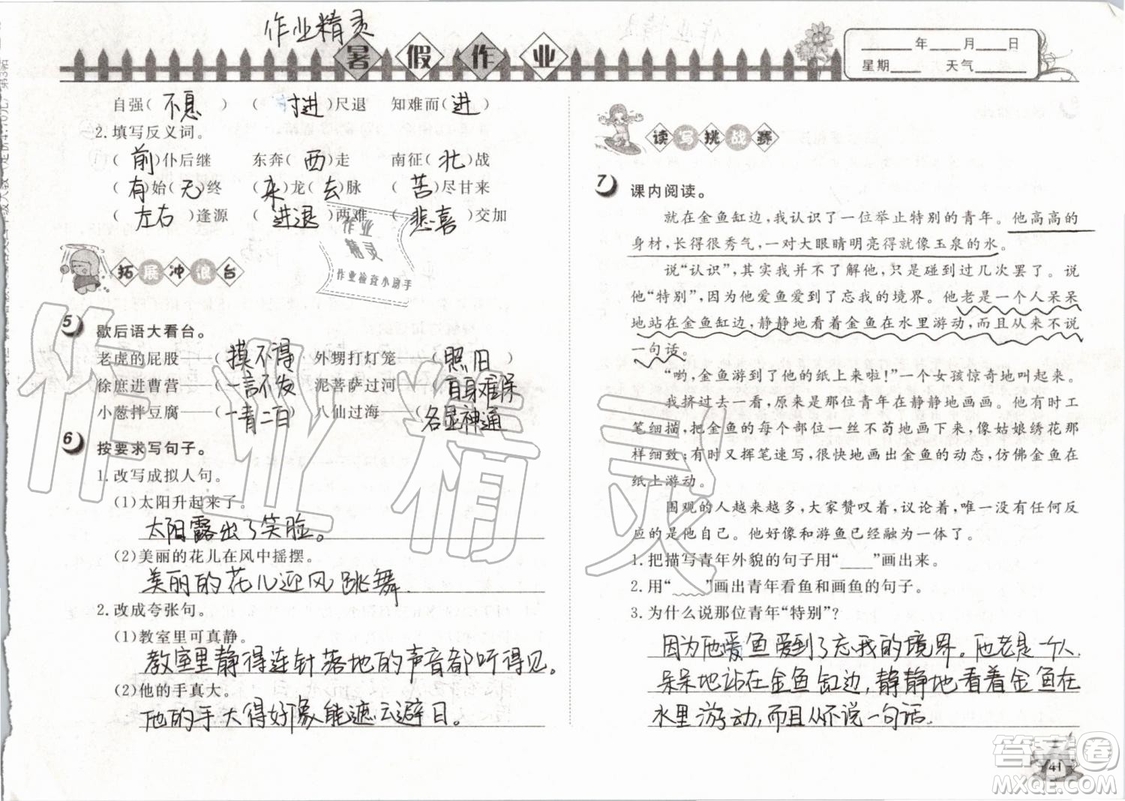 作业精灵
暑假作业
自强(不息) (寸进)尺退 知难而(进)
2.填写反义词。
(前)仆后继 东奔(西)走 南征(北)战
(有)始(无)终 (来)龙(去)脉 (苦)尽甘来
(左右)逢源 (进退)两难 (悲喜)交加
作业
精灵
作业检查小助手
拓展冲浪台
5 歇后语大看台。
老虎的屁股——(摸不得) 外甥打灯笼——(照旧)
徐庶进曹营——(一言不发) 泥菩萨过河——(自身难保)
小葱拌豆腐——(一青二白) 八仙过海——(各显神通)
6 按要求写句子。
1.改写成拟人句。
(1)太阳升起来了。
太阳露出了笑脸。
(2)美丽的花儿在风中摇摆。
美丽的花儿迎风跳舞.
2.改成夸张句。
(1)教室里可真静。
教室里静得连针落地的声音都听得见。
(2)他的手真大。
他的手大得好像能遮云避日。
____年____月____日
星期____ 天气____
读写挑战赛
7 课内阅读。
就在金鱼缸边,我认识了一位举止特别的青年。他高高的
身材,长得很秀气,一对大眼睛明亮得就像玉泉的水。
说“认识”,其实我并不了解他,只是碰到过几次罢了。说
他“特别”,因为他爱鱼到了忘我的境界。他老是一个人呆呆
地站在金鱼缸边,静静地看着金鱼在水里游动,而且从来不说
一句话。
“哟,金鱼游到了他的纸上来啦!”一个女孩惊奇地叫起来。
我挤过去一看,原来那位青年在静静地画画。他有时工
笔细描,把金鱼的每个部位一丝不苟地画下来,像姑娘绣花那
样细致;有时又挥笔速写,很快地画出金鱼的动态,仿佛金鱼在
纸上游动。
围观的人越来越多,大家赞叹着,议论着,唯一没有任何反
应的是他自己。他好像和游鱼已经融为一体了。
1.把描写青年外貌的句子用“____”画出来。
2.用“﹏﹏”画出青年看鱼和画鱼的句子。
3.为什么说那位青年“特别”?
因为他爱鱼爱到了忘我的境界。他老是一个人
呆呆地站在金鱼缸边,静静地看着金鱼在
水里游动,而且从不说一句话。
41
作业精灵
答案卷
MXQE.COM